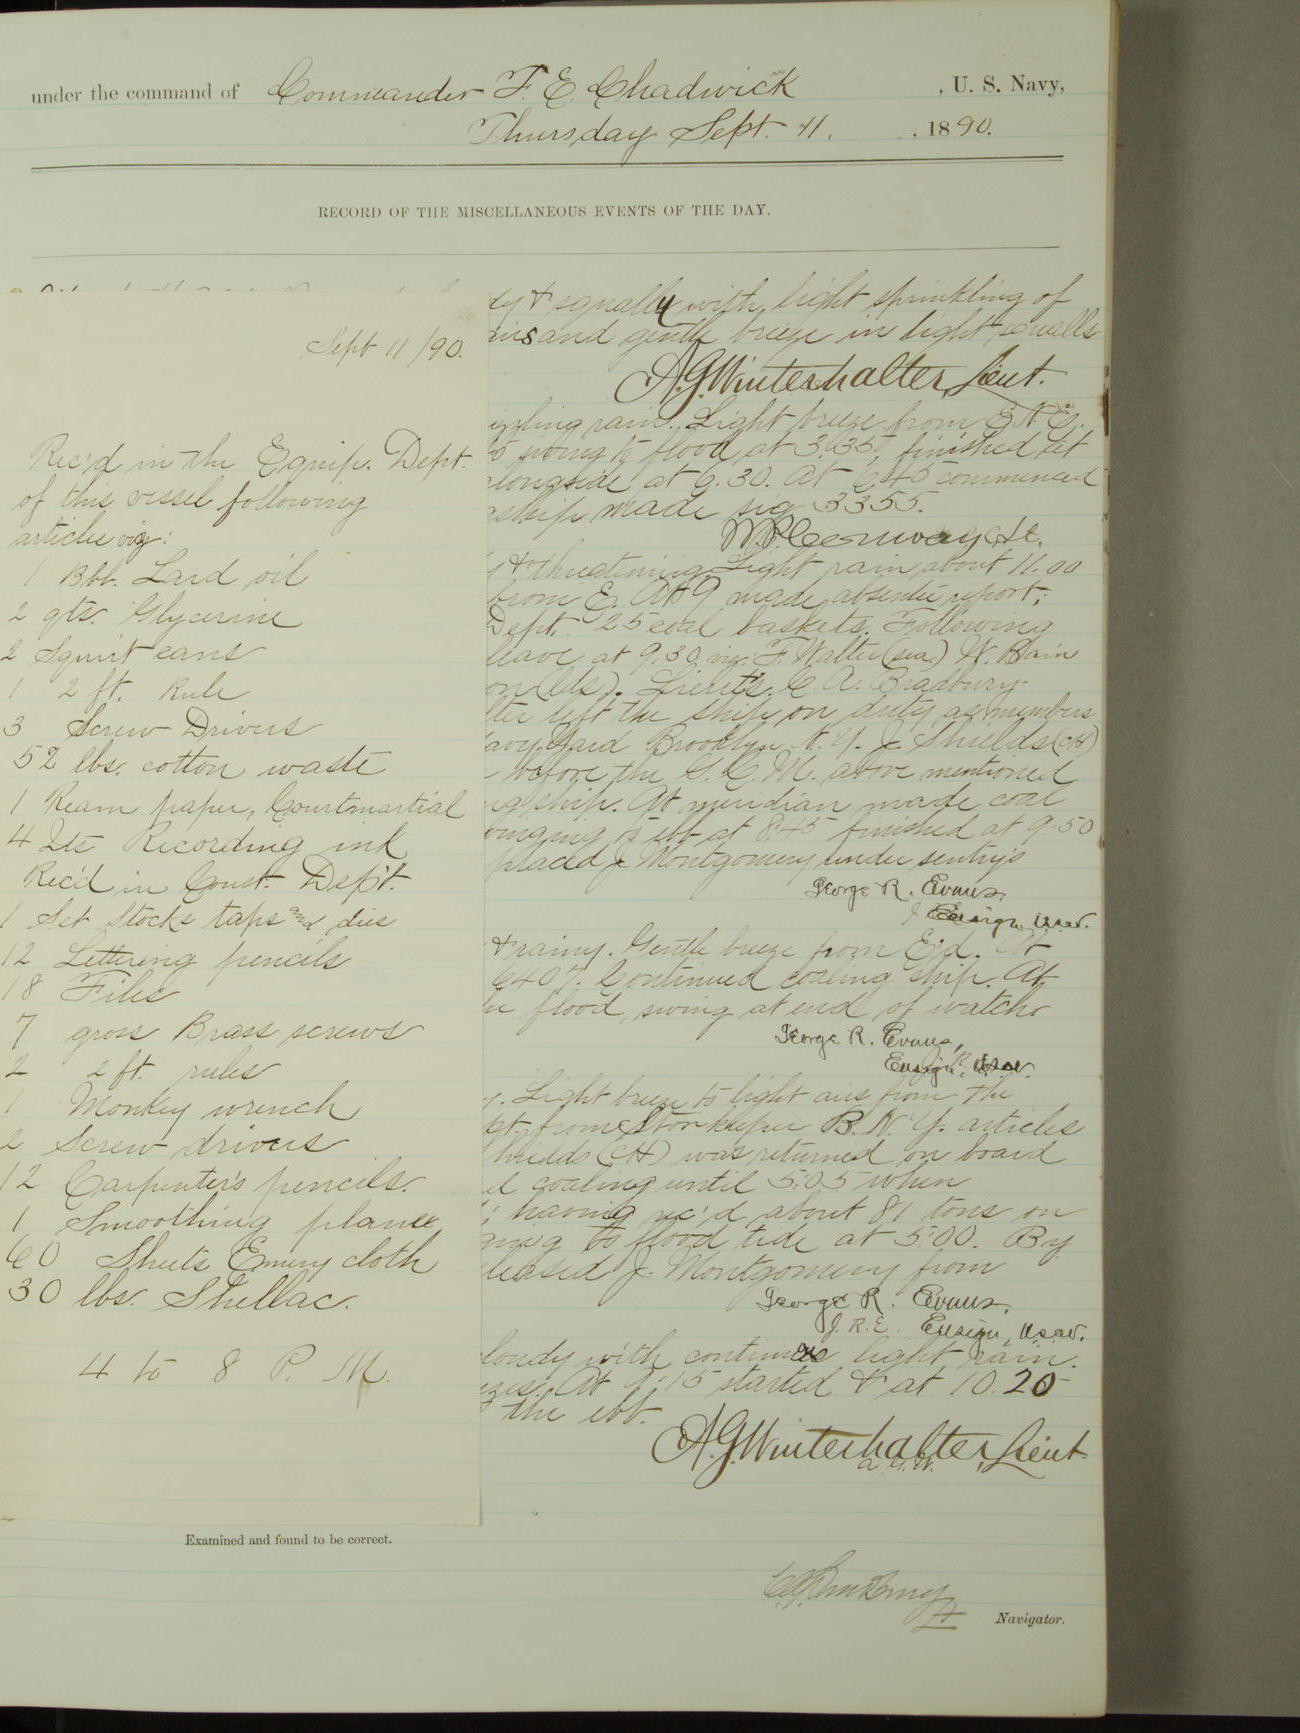 under the command of Commander F. E. Chadwick, U. S. Navy,
Thursday Sept. 11, 1890.
RECORD OF THE MISCELLANEOUS EVENTS OF THE DAY.
Sept 11/90.
Rec'd in the Equip. Dept.
of this vessel following
articles viz:
1 Bbl. Lard oil
2 qts. Glycerine
2 Squirt cans
1 2 ft. Rule
3 Screw Drivers
52 lbs. cotton waste
1 Ream paper, Courtmartial
4 Qts Recording ink
Rec'd in Const. Dep't.
1 Set Stocks taps and dies
12 Lettering pencils
18 Files
7 gross Brass screws
2 2 ft. rules
1 Monkey wrench
2 Screw drivers
12 Carpenter's pencils.
1 Smoothing plane
60 Sheets Emery cloth
30 lbs. Shellac.
4 to 8 P. M.
& squally with light sprinkling of
airs and gentle breeze in light squalls
A.G. Winterhalter, Lieut.
rain. Light breeze from E.N.E.
swing to flood at 3.35, finished at
alongside at 6.30. At 6.45 commenced
ship made sig 3355.
W.P. Conway Lt.
& threatening. Light rain about 11.00
from E. At 9 made absentee report;
Dept. 25 coal baskets. Following
leave at 9.30 viz: F. Walter (sea) W. Bain
Lieuts. C. A. Bradbury
left the ship on duty as members
Navy Yard Brooklyn N.Y. J. Shields (CH)
before the G.C.M. above mentioned
ship. At meridian made coal
swinging to ebb at 8.45 finished at 9.50
placed J. Montgomery under sentry's
George R. Evans,
Ensign, USN.
& rainy. Gentle breeze from E'd. At
6407. Continued coaling ship. At
flood, swing at end of watch.
George R. Evans,
Ensign, USN.
Light breeze to light airs from the
from Storekeeper B.N.Y. articles
Shields (CH) was returned on board
coaling until 5:05 when
having rec'd about 81 tons on
to flood tide at 5:00. By
released J. Montgomery from
George R. Evans,
J.R.E. Ensign, USN.
cloudy with continuous light rain.
At 9:15 started & at 10.20
the ebb.
A.G. Winterhalter, Lieut.
Examined and found to be correct.
Navigator.